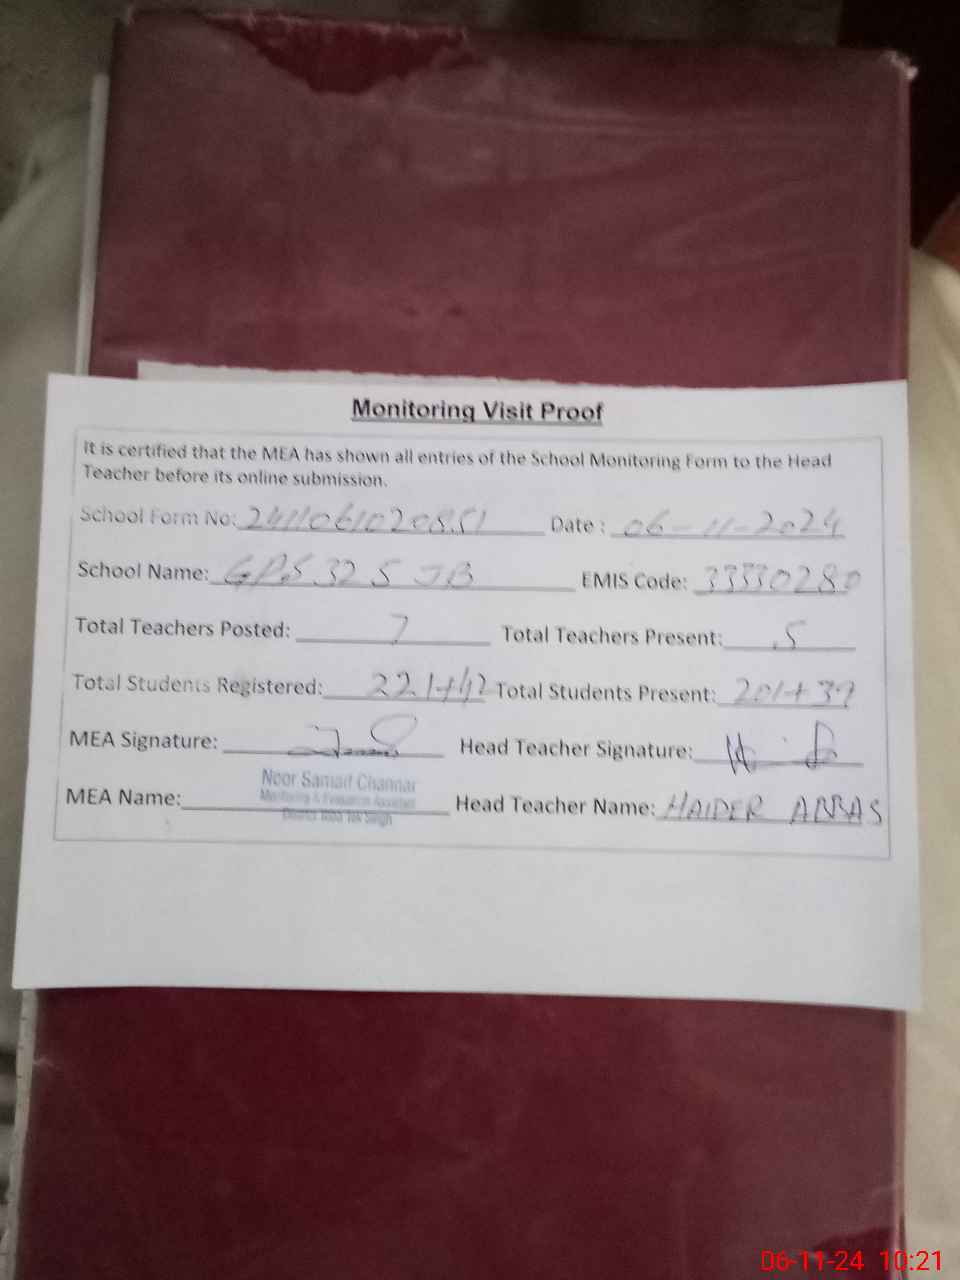 Monitoring Visit Proof
It is certified that the MEA has shown all entries of the School Monitoring Form to the Head
Teacher before its online submission.
School Form No: 2411061020851 Date : 06-11-2024
School Name: GPS 325 JB EMIS Code: 33330280
Total Teachers Posted: 7 Total Teachers Present: 5
Total Students Registered: 221+42 Total Students Present: 201+39
MEA Signature: Head Teacher Signature:
Noor Samad Channar
Monitoring & Evaluation Assistant
MEA Name: Head Teacher Name: HAIDER ABBAS
District Toba Tek Singh
06-11-24 10:21